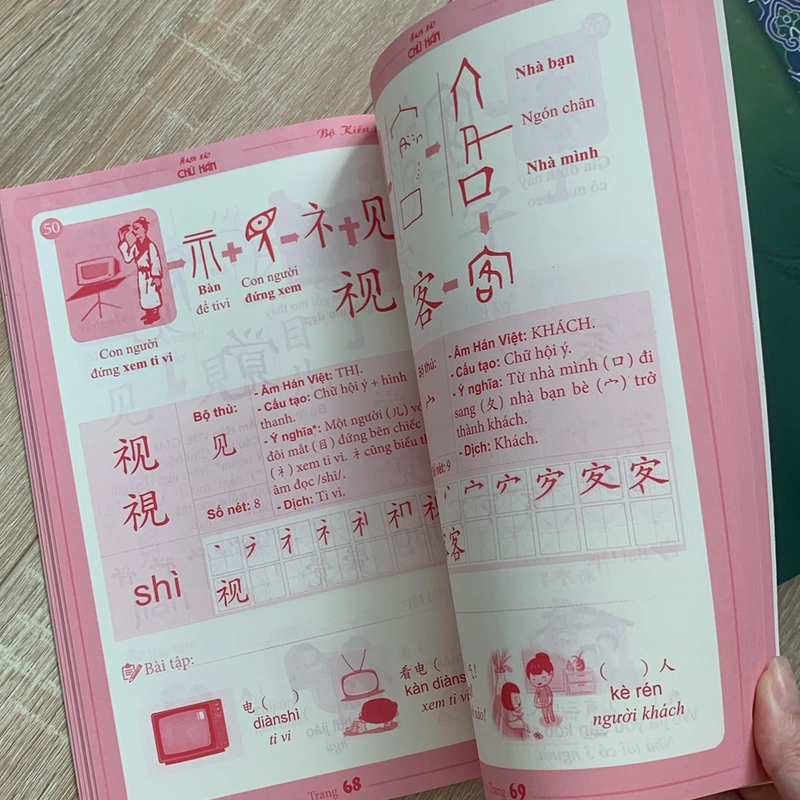 CHỮ HÁN
Bộ Kiến
50
示
+
-
礻
+
见
视
Bàn
để tivi
Con người
đứng xem
Con người
đứng xem ti vi
视
視
shì
Bộ thủ:
见
Số nét: 8
- Âm Hán Việt: THỊ.
- Cấu tạo: Chữ hội ý + hình
thanh.
- Ý nghĩa*: Một người (儿) vớ
đôi mắt (目) đứng bên chiếc
(礻) xem ti vi. 礻 cũng biểu th
âm đọc /shi/.
- Dịch: Ti vi.
视
Bài tập:
电 (     )
diànshì
ti vi
看电
kàn diàns
xem ti v
Trang 68
CHỮ HÁN
Nhà bạn
Ngón chân
Nhà mình
客
Bộ thủ:
宀
Số nét: 9
- Âm Hán Việt: KHÁCH.
- Cấu tạo: Chữ hội ý.
- Ý nghĩa: Từ nhà mình (口) đi
sang (夂) nhà bạn bè (宀) trở
thành khách.
- Dịch: Khách.
客
(     ) 人
kè rén
người khách
Trang 69